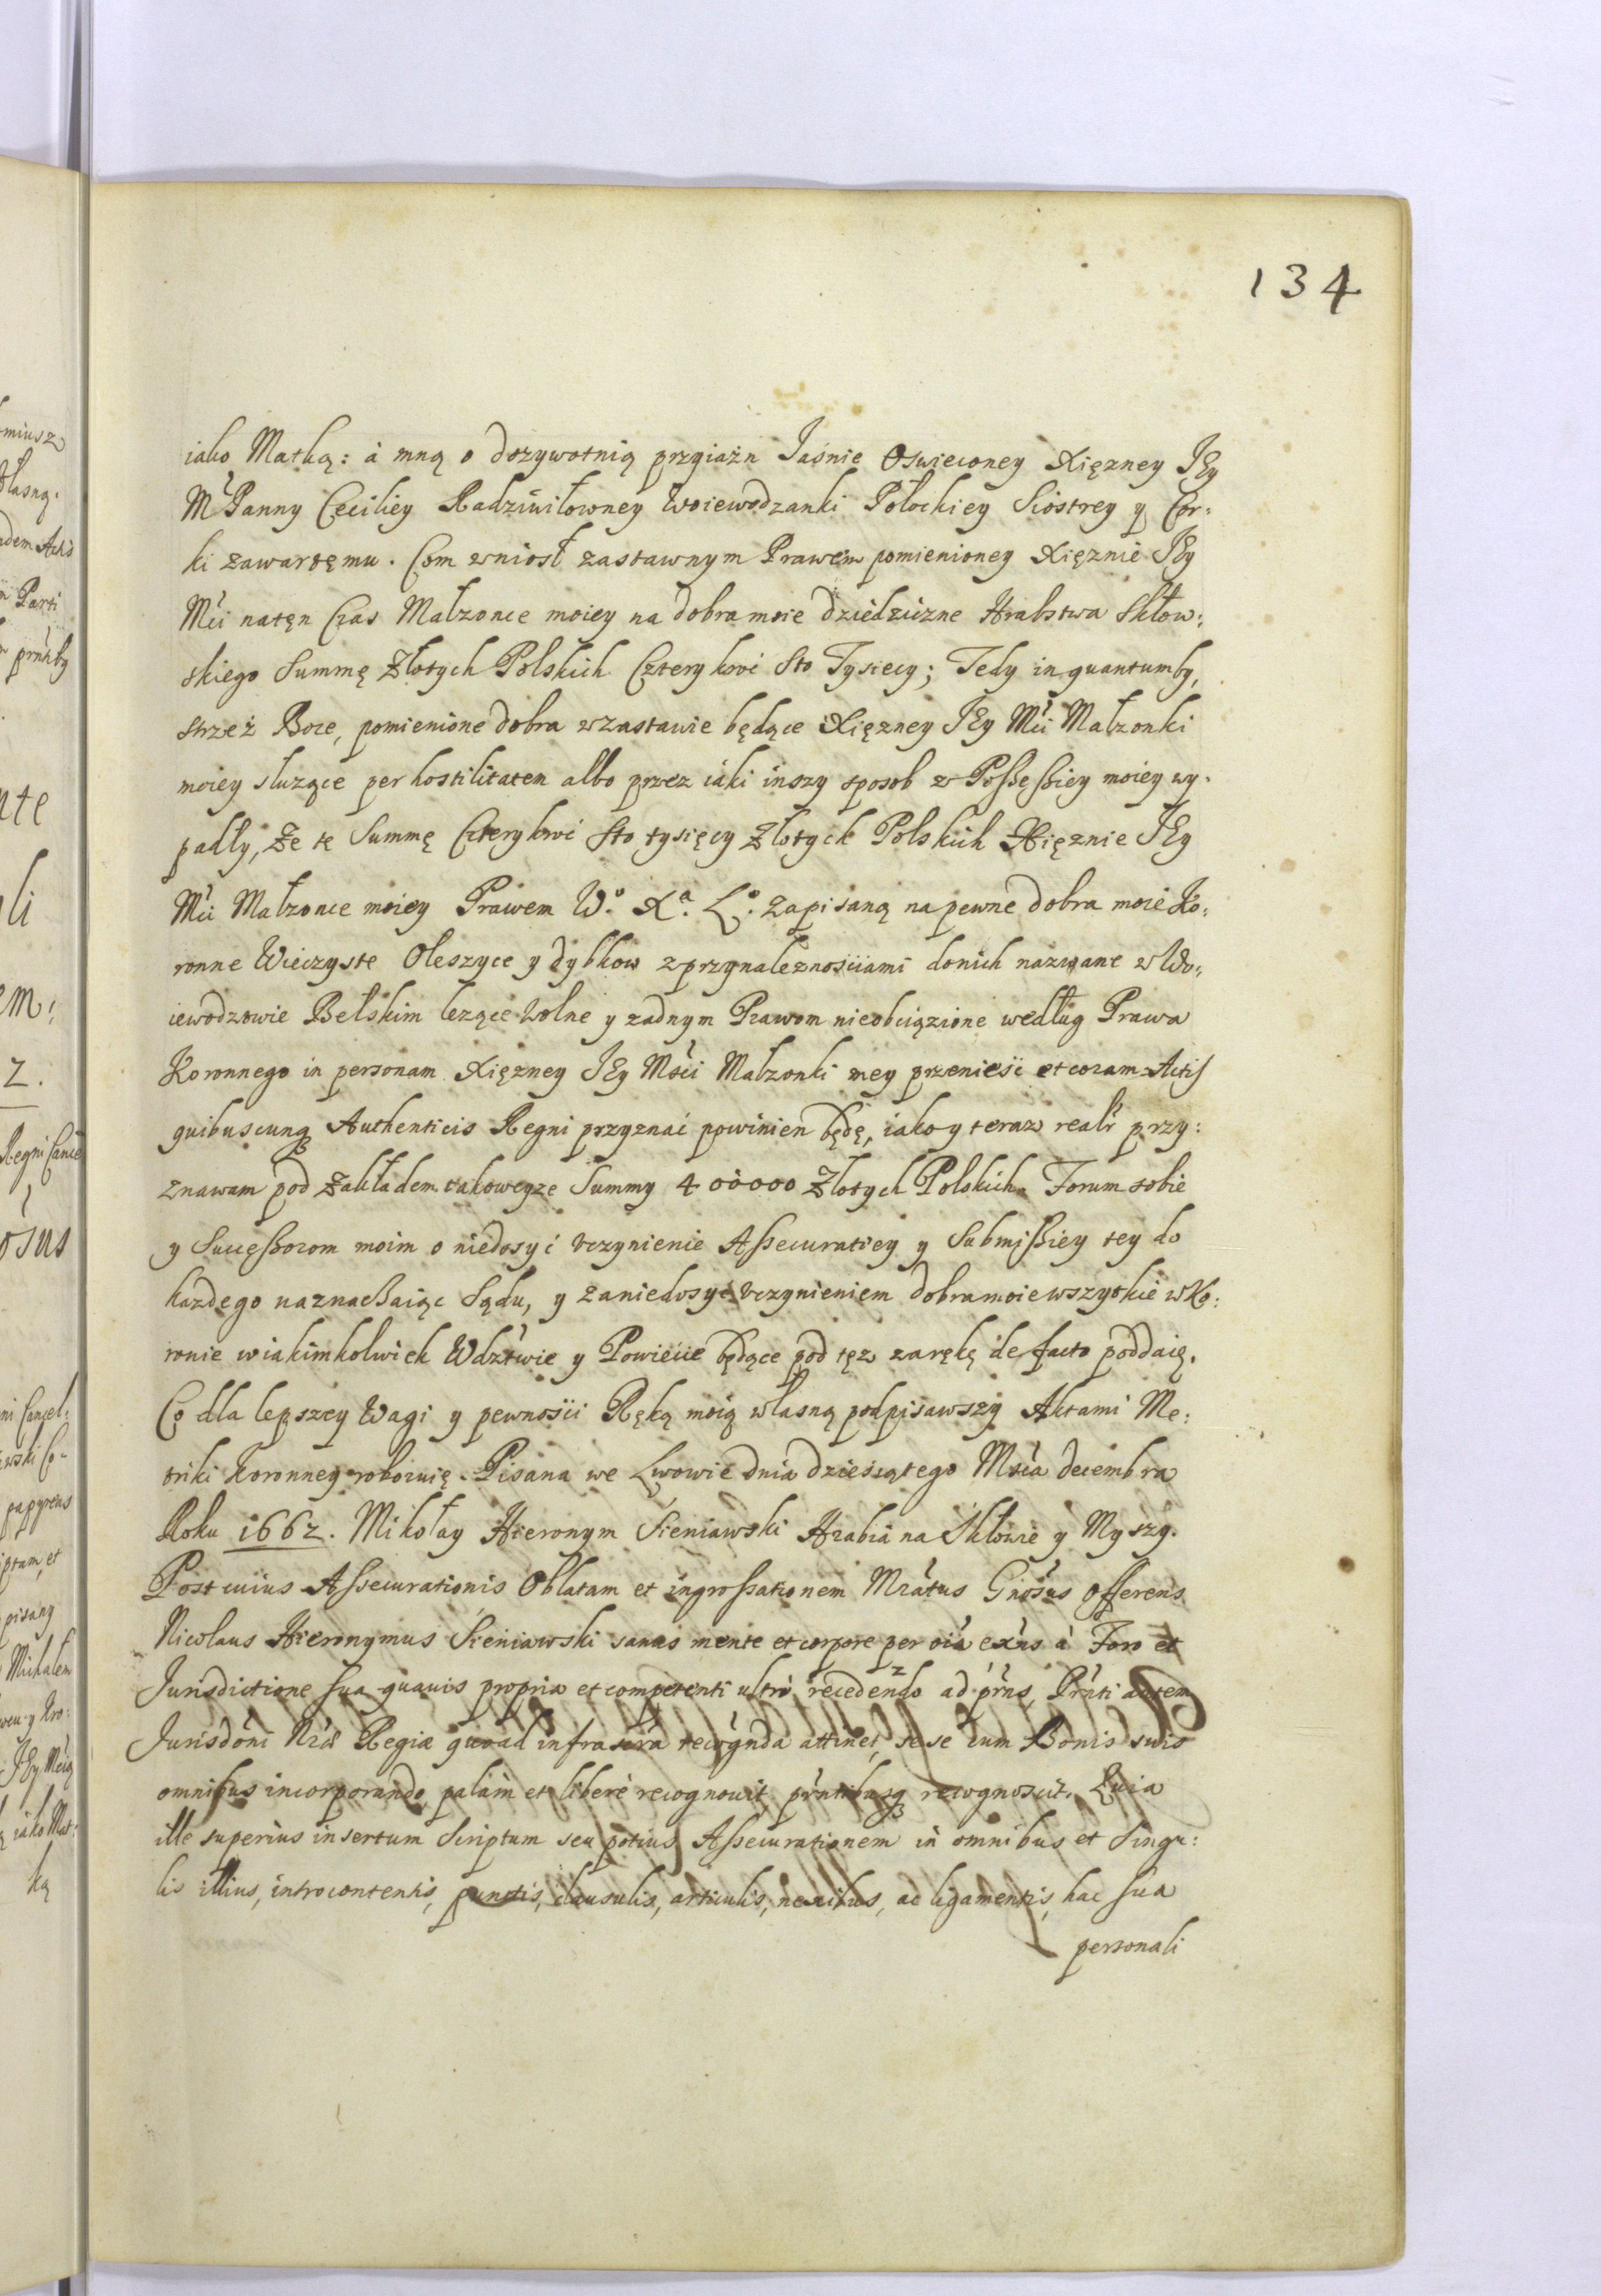 134
iako Matką: à mną o dozywotnią przyiaźn Jaśnie Oswieconey Xięzney JEy
Mč Panny Ceciliey Radziwiłowney Woiewodzanki Połockiey Siostrey y Cor:
ki zawartęmu. Com wniosł zastawnym Prawem pomienioney Xięznie JEy
Mći natęn Czas Małzonce moiey na dobra moie dziedziczne Hrabstwa Skłow:
skiego Summę Złotych Polskich Czterykroć Sto Tysiecy; Tedy in quantumby,
strzeż Boze, pomienione dobra wzastawie będące Xięzney JEy Mći Małzonki
moiey sluzące per hostilitatem albo przez iaki inszy sposob z Possessiey moiey wy-
padły, Ze te Summę Czterykroć Sto tysięcy Złotych Polskich Xięznie JEy
Mći Małzonce moiey Prawem W.º X.ª L.º zapisaną na pewne dobra moie Ko:
ronne Wieczyste Oleszyce y dybkow zprzynaleznosciami donich nazwane w Wo:
iewodzowie Bełskim lezące wolne y zadnym Prawom nieobciązione według Prawa
Koronnego in personam Xięzney JEy Mści Małzonki mey przenieść et coram Actis
quibuscunq Authenticis Regni przyznać powinien będę, iako y teraz realr przy:
znawam pod zakładem takoweyze Summy 400000 Złotych Polskich. Forum sobie
y Successorom moim o niedosyć vczynienie Assecuratiey y Submissiey tey do
kazdego naznachaiąc Sądu, y zaniedosyć vczynieniem dobra moie wszytkie w Ko:
ronie w iakimkolwiek Wdztwie y Powiecie będące pod tęz zarękę de facto poddaię.
Co dla lepszey Wagi y pewności Ręką moią własną podpisawszy Aktami Me:
triki Koronney roboruię. Pisana we Lwowie dnia dziesiątego Msca decembra
Roku 1662. Mikołay Hieronym Sieniawski Hrabia na Skłowie y Myszy.
Post cuius Assecurationis Oblatam et ingrossationem Mratus Gnosus offerens
Nicolaus Hieronymus Sieniawski sanus mente et corpore per oia exns à Foro et
Jurisdictione sua quauis propria et competenti ultro recedendo ad prns, Prnti autem
Jurisdoni Nrae Regiae quoad infrascra recognda attinet, sese cum Bonis suis
omnibus incorporando, palàm et liberè recognouit, prntibusq recognoscit. Quia
ille superius insertum Scriptum seu potius Assecurationem in omnibus et Singu:
lis illius, introcontentis, punctis, clausulis, articulis, nexibus, ac ligamentis, hac sua
personali